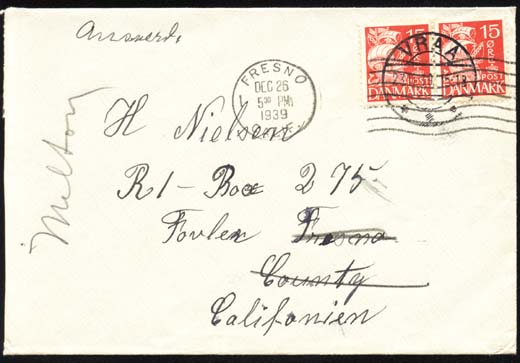 Answerd.
15 15
ØRE
POST POST
DANMARK DANMARK
VRAA
FRESNO
DEC 26
5 30 PM
1939
CALIF.
Milton
H Nielsen
R1-Box 275
Fovler Fresno
County
Califonien